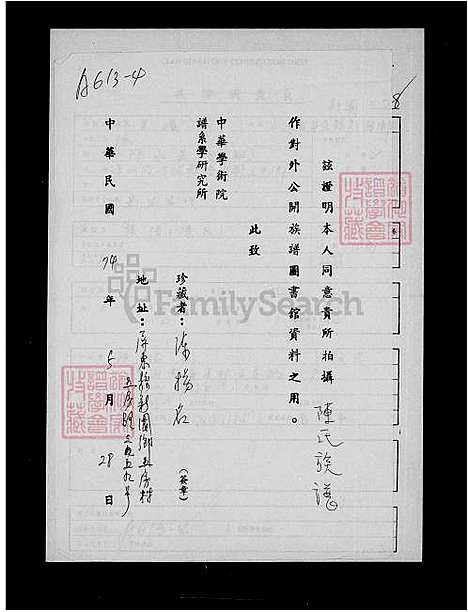 A613-4
茲證明本人同意貴所拍攝 陳氏族譜
作對外公開族譜圖書館資料之用。
此致
中華學術院
譜系學研究所
珍藏者：陳揚名 (簽章)
地址：屏東縣新園鄉五房村
中華民國 74 年 5 月 28 日
FamilySearch